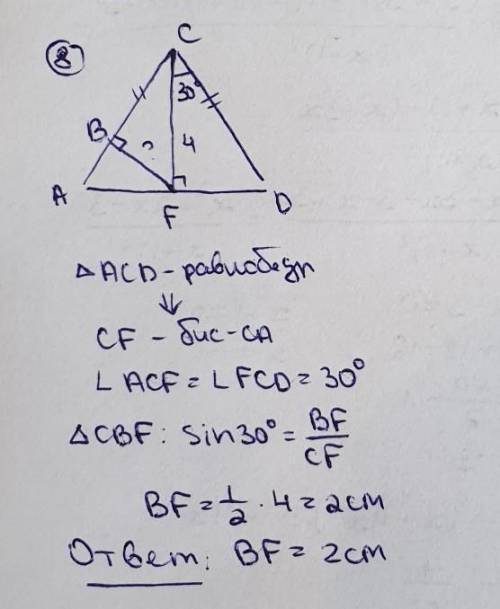 8
C
30°
B
?
4
A
F
D
△ACD - равнобедр
⇓
CF - бис-са
∟ACF = ∟FCD = 30°
△CBF: sin30° = BF/CF
BF = 1/2 · 4 = 2см
Ответ: BF = 2см